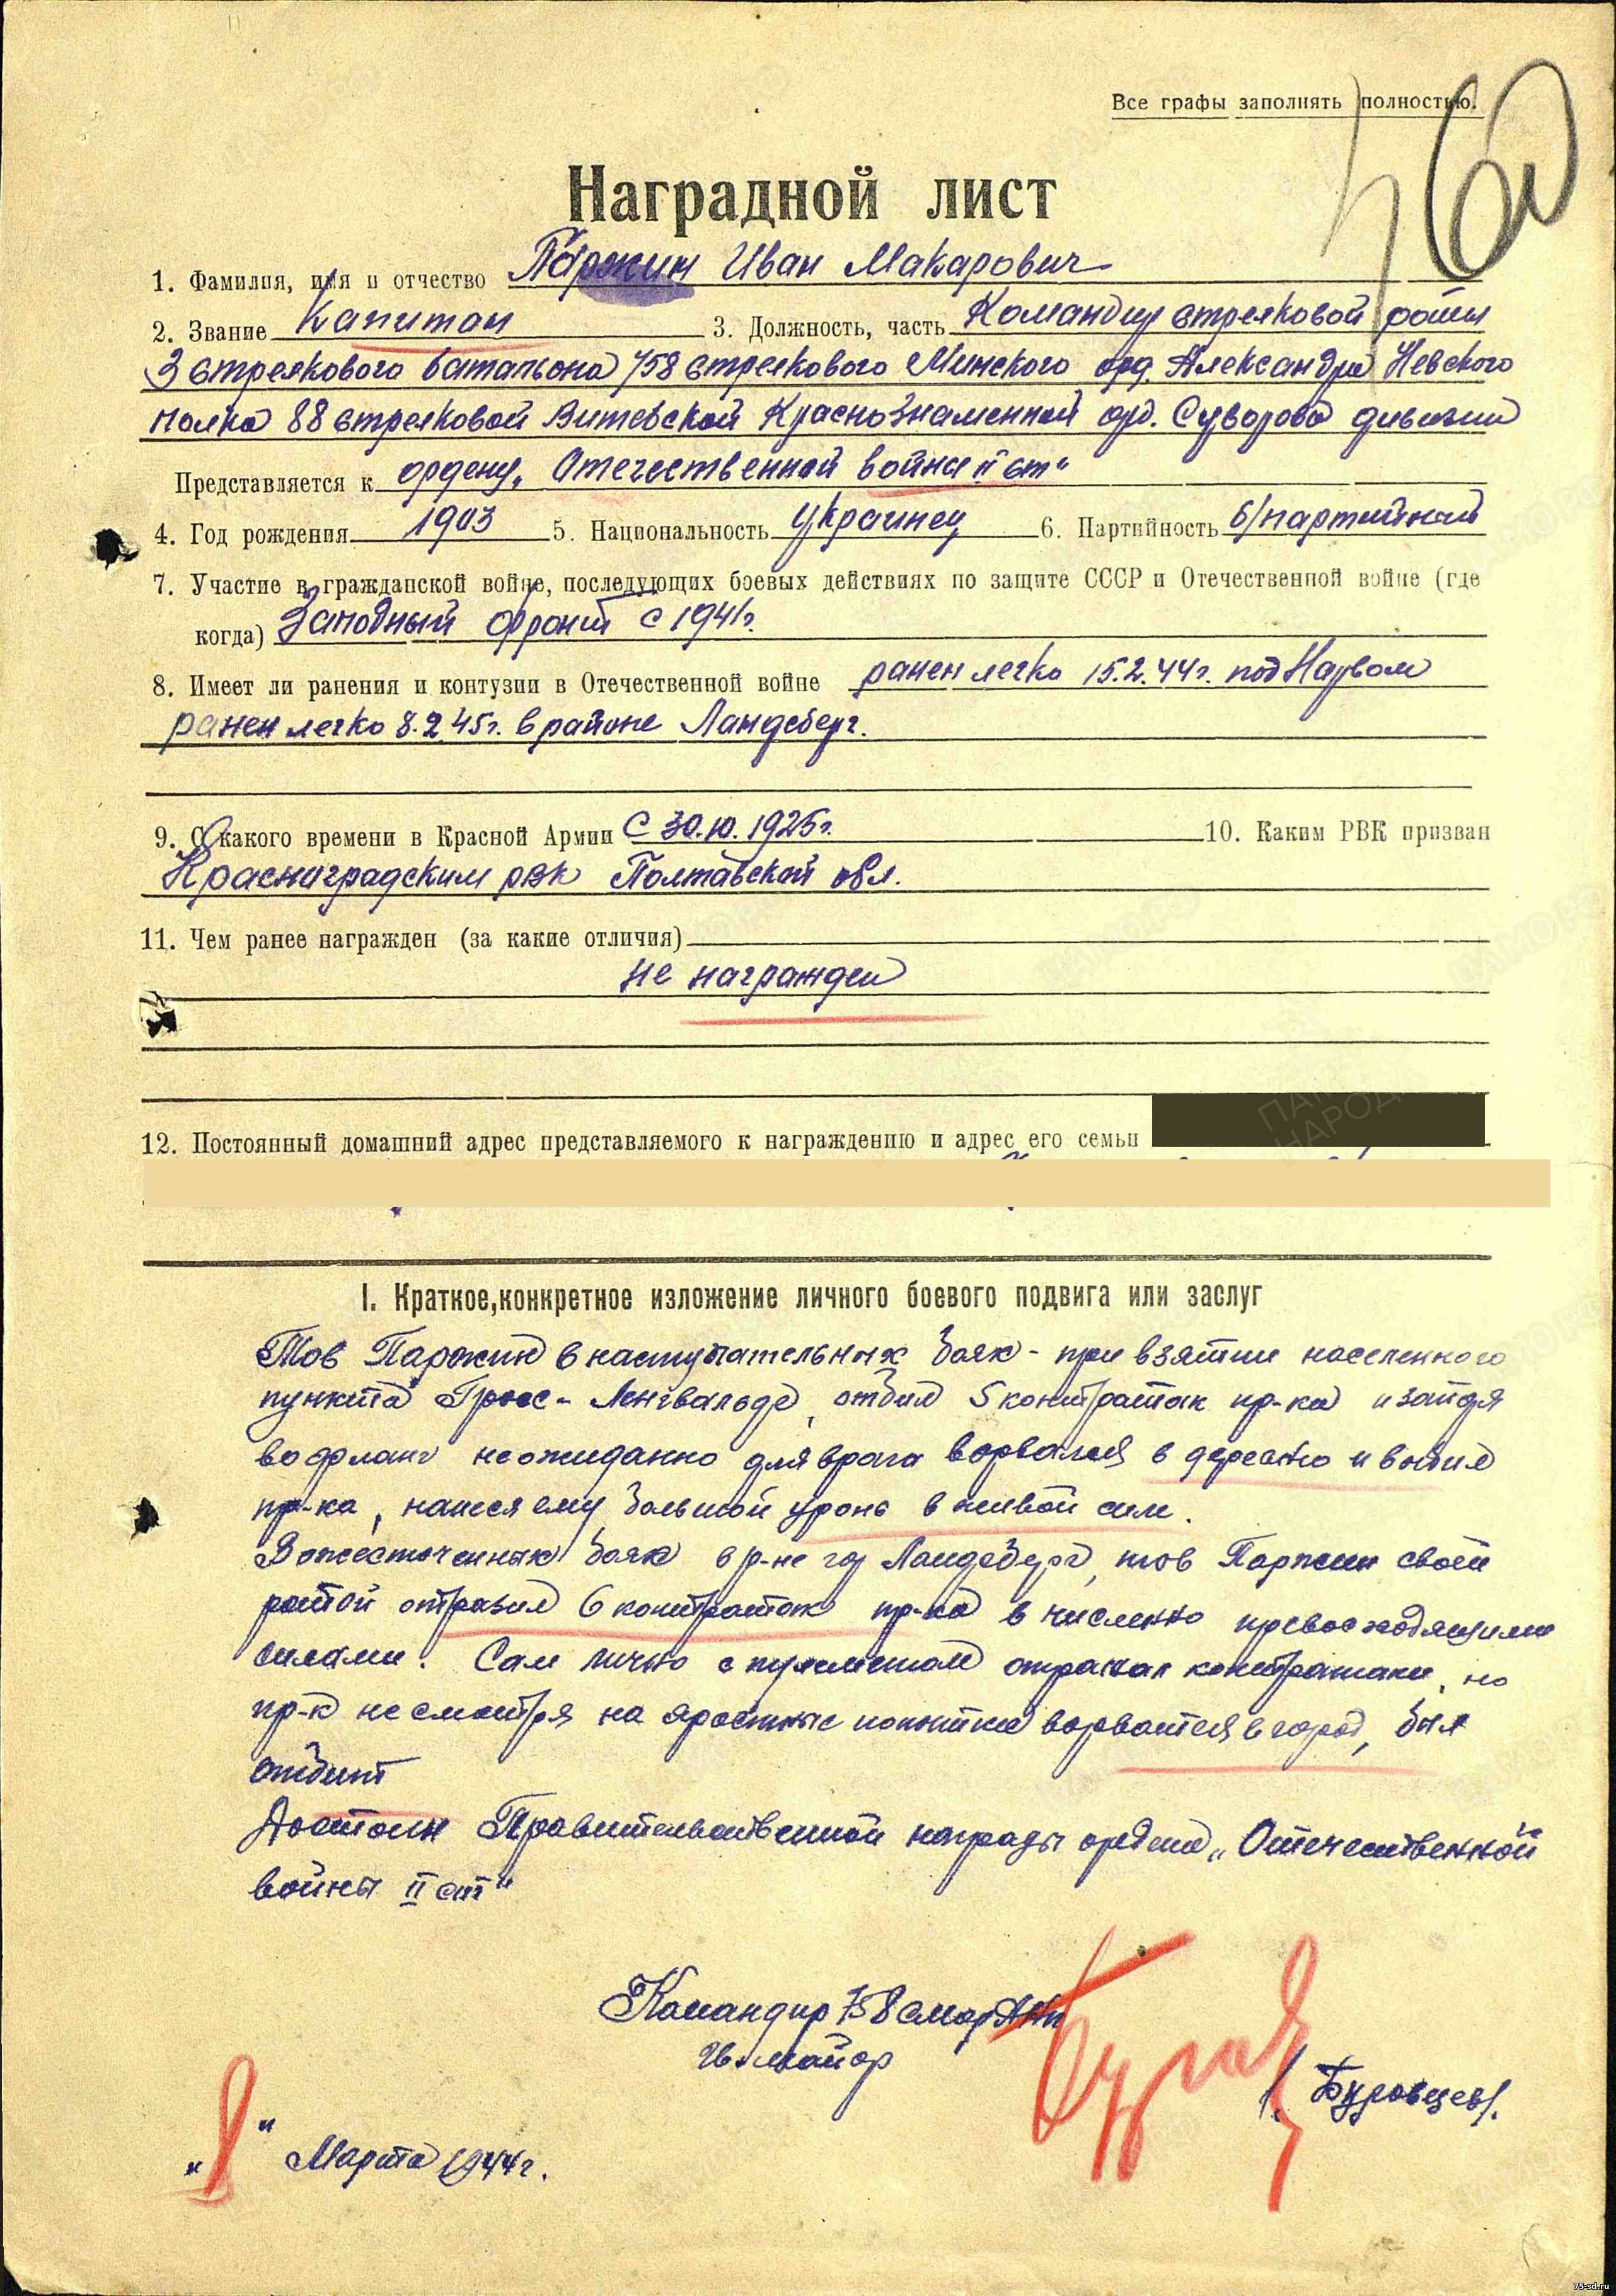 Все графы заполнять полностью.
Наградной лист
1. Фамилия, имя и отчество Паржин Иван Макарович
2. Звание Капитан 3. Должность, часть Командир стрелковой роты
3 стрелкового батальона 758 стрелкового Минского орд. Александра Невского
полка 88 стрелковой Витебской Краснознаменной орд. Суворова дивизии
Представляется к ордену „Отечественной война II ст"
4. Год рождения 1903 5. Национальность украинец 6. Партийность б/партийный
7. Участие в гражданской войне, последующих боевых действиях по защите СССР и Отечественной войне (где
когда) Западный фронт с 1941г.
8. Имеет ли ранения и контузии в Отечественной войне ранен легко 15.2.44г. под Нарвой
ранен легко 8.2.45г. в районе Ландсберг.
9. С какого времени в Красной Армии С 30.10.1925г. 10. Каким РВК призван
Красноградским рвк Полтавской обл.
11. Чем ранее награжден (за какие отличия)
не награжден
12. Постоянный домашний адрес представляемого к награждению и адрес его семьи
ПАМ
НАРОД
I. Краткое, конкретное изложение личного боевого подвига или заслуг
Тов Паржин в наступательных боях - при взятии населенного
пункта Гросс-Ленгвальде, отбил 5 контратак пр-ка и зайдя
во фланг неожиданно для врага ворвался в деревню и выбил
пр-ка, нанеся ему большой уронь в живой силе.
В ожесточенных боях в р-не гор Ландсберг, тов Паржин своей
ротой отразил 6 контратак пр-ка в численно превосходящими
силами. Сам лично с пулеметом отражал контратаки, но
пр-к несмотря на яростные попытки ворваться в город, был
отбит
Достоин Правительственной награды ордена „Отечественной
войны II ст"
Командир 758
Гв. майор
/Буровцев/.
„8" Марта 1944г.
75-sd.ru